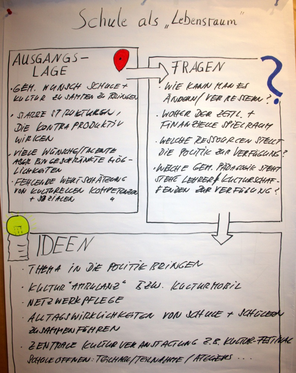 Schule als „Lebensraum"
AUSGANGS-
LAGE
· GEM. WUNSCH SCHULE +
KULTUR ZUSAMMEN ZU BRINGEN
· STARRE STRUKTUREN,
DIE KONTRAPRODUKTIV
WIRKEN
· VIELE WÜNSCHE/TALENTE
ABER EINGESCHRÄNKTE MÖG-
LICHKEITEN
· FEHLENDE WERTSCHÄTZUNG
VON KULTURELLEN KOMPETENZEN
+ SOZIALEN "
FRAGEN
?
· WIE KANN MAN ES
ÄNDERN/VERBESSERN?
· WOHER DER ZEITL. +
FINANZIELLE SPIELRAUM
· WELCHE RESSOURCEN STELLT
DIE POLITIK ZUR VERFÜGUNG?
· WELCHE GEM. STEHT
STEHT LEHRER/KULTURSCHAF-
FENDEN ZUR VERFÜGUNG?
IDEEN
· THEMA IN DIE POLITIK BRINGEN
· KULTUR"AMBULANZ" BZW. KULTURMOBIL
· NETZWERKPFLEGE
· ALLTAGSWIRKLICHKEITEN VON SCHULE + SCHÜLERN
ZUSAMMENFÜHREN
· ZENTRALE KULTURVERANSTALTUNG Z.B. KULTUR-FESTIVAL
SCHULE ÖFFNEN: TEILNAHME